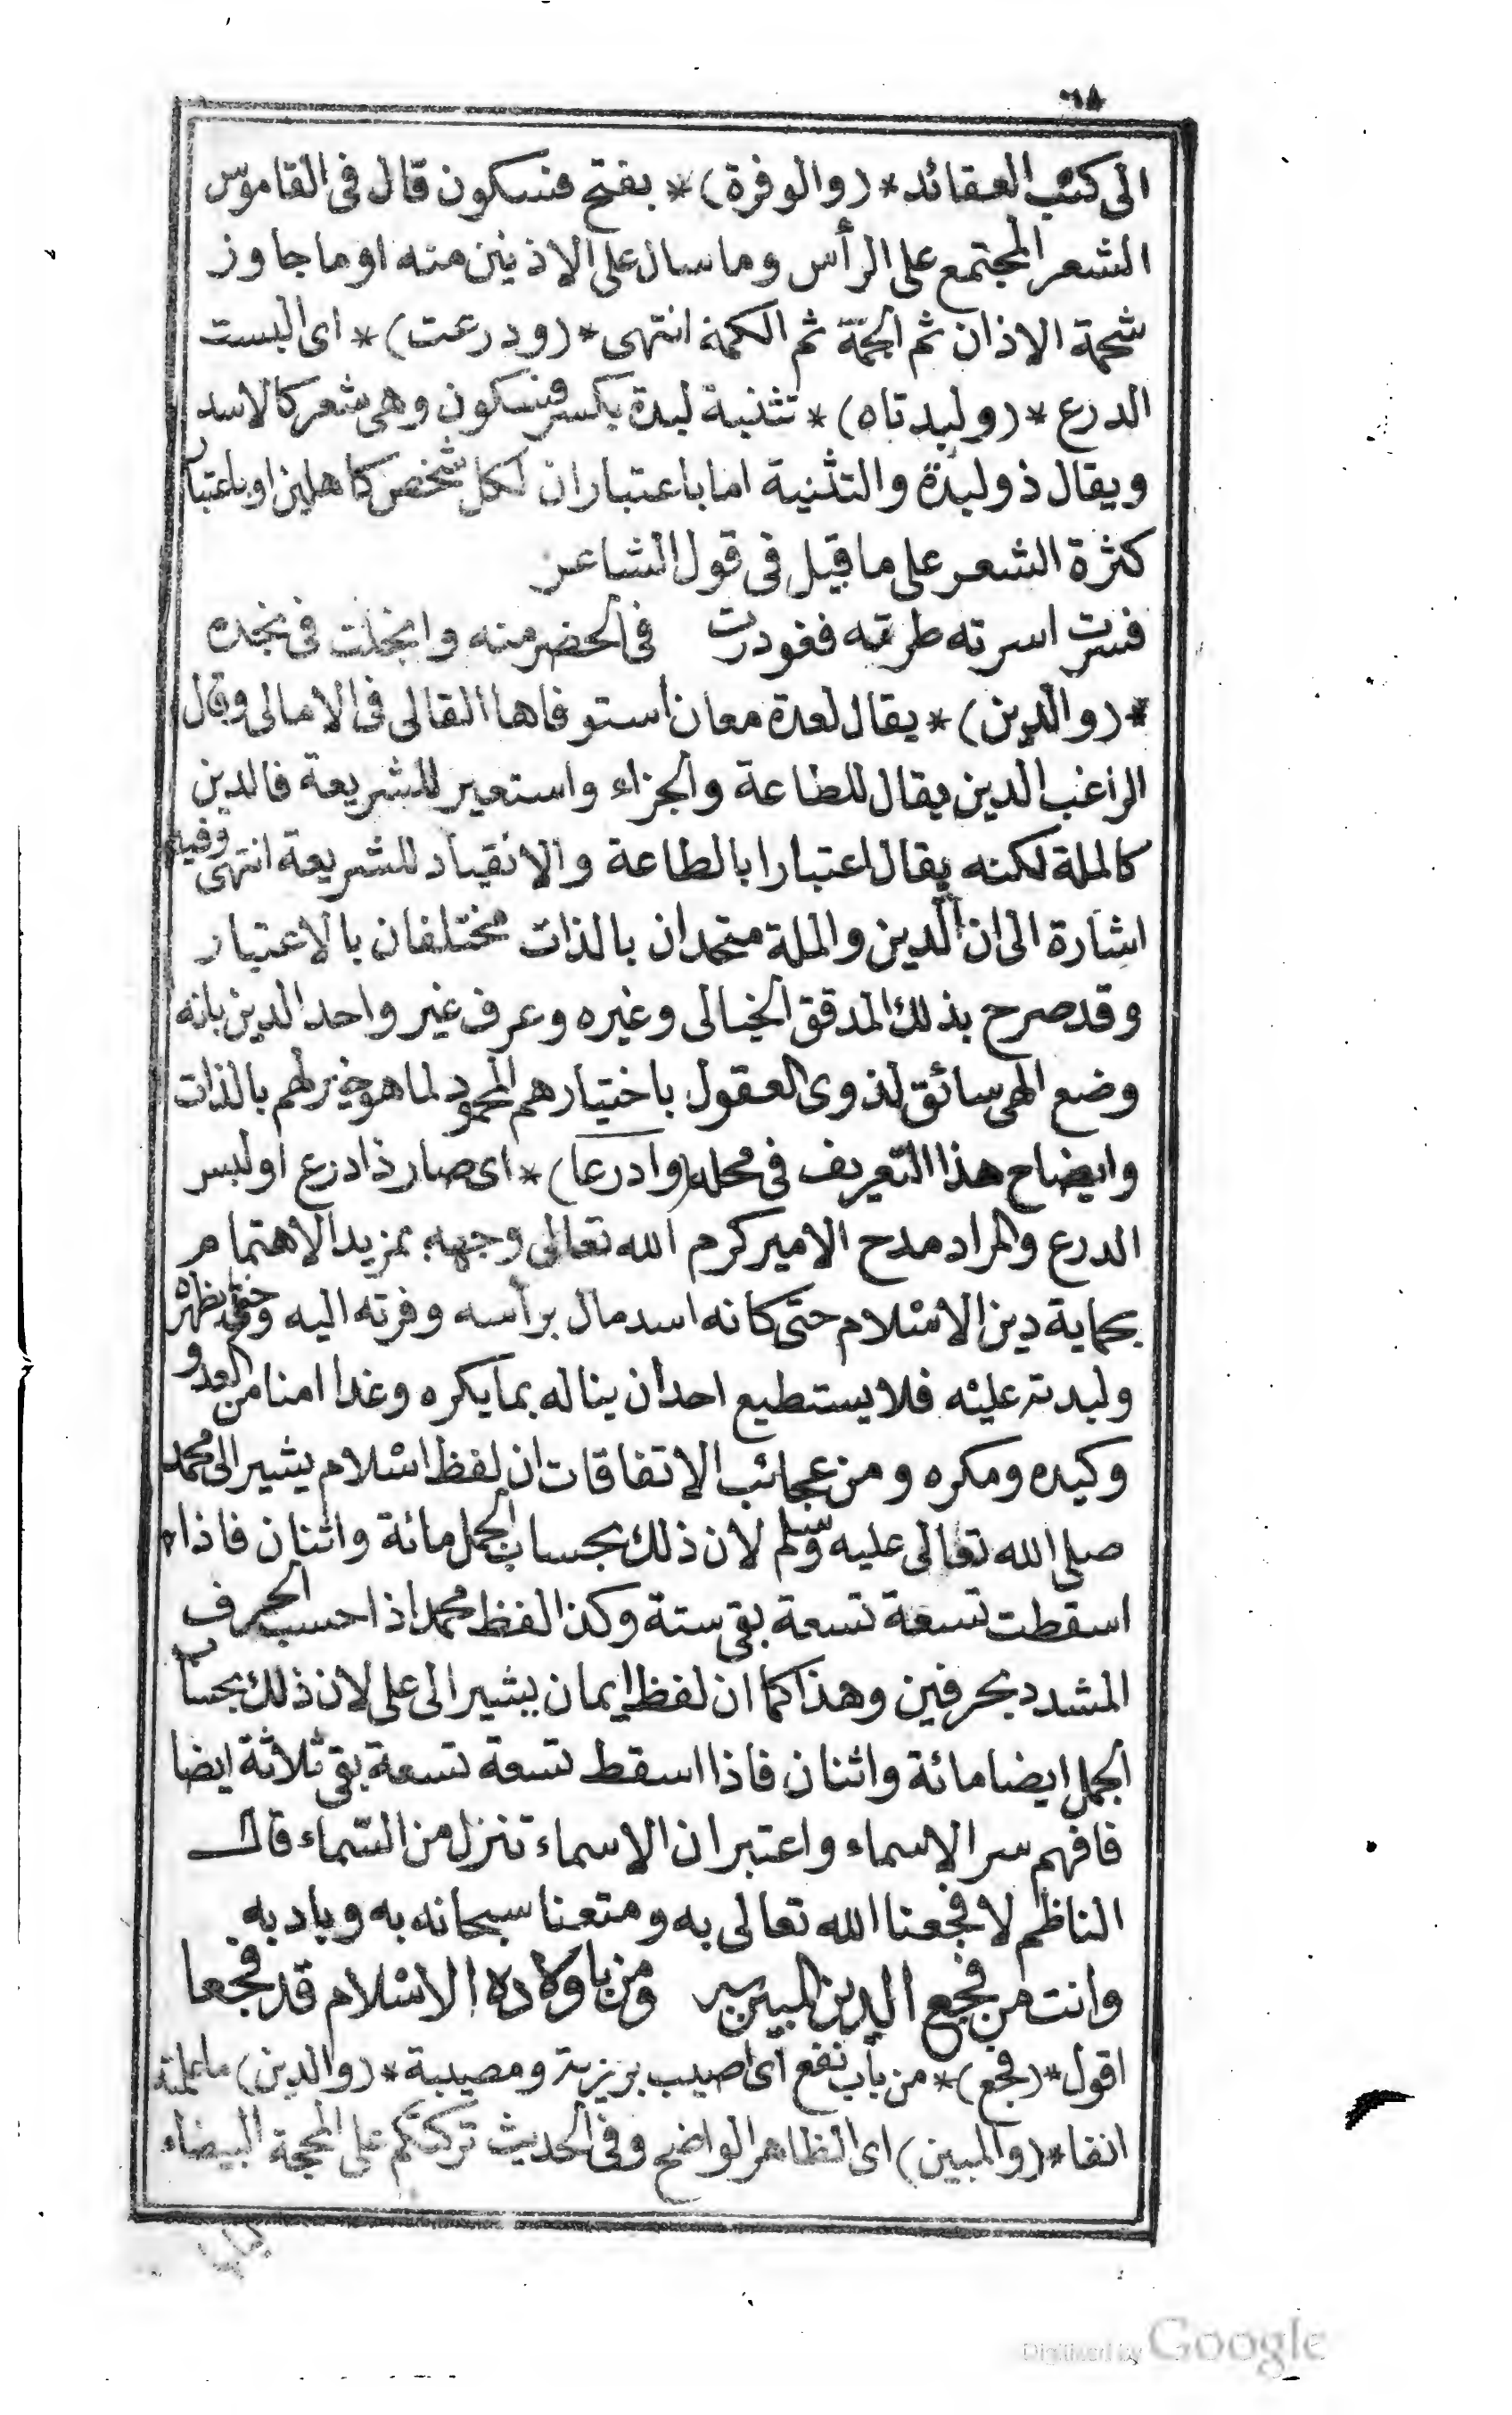 ٦٨
الى كتب العقائد * (والوفرة) * بفتح فسكون قال فى القاموس
الشعر المجتمع على الرأس وما سال على الاذنين منه او ما جاوز
شحمة الاذن ثم الجمّة ثم اللمة انتهى * (ودرعت) * اى البست
الدرع * (ولبدتاه) * تثنية لبدة بكسر فسكون وهى شعر كالاسد
ويقال ذو لبدة والتثنية اما باعتبار ان لكل شخص كاهلين او باعتبار
كثرة الشعر على ما قيل فى قول الشاعر
اسرته طرته فغودرت فى الخصر منه وانجلت فى نجده
* (والدين) * يقال لعدة معان استوفاها القالى فى الامالى وقال
الراغب الدين يقال للطاعة والجزاء واستعير للشريعة فالدين
كالملة لكنه يقال اعتبارا بالطاعة والانقياد للشريعة انتهى وفيه
اشارة الى ان الدين والملة متحدان بالذات مختلفان بالاعتبار
وقد صرح بذلك المدقق الخيالى وغيره وعرف غير واحد الدين بانه
وضع الهى سائق لذوى العقول باختيارهم المحمود لما هو خير لهم بالذات
وايضاح هذا التعريف فى محله (وادرعا) * اى صار ذا درع او لبس
الدرع والمراد مدح الامير كرم الله تعالى وجهه بمزيد الاهتمام
بحماية دين الاسلام حتى كانه اسد مال برأسه وفرته اليه وحنى ظهره
ولبدته عليه فلا يستطيع احد ان يناله بما يكره وغدا امنا من العدو
وكيده ومكره ومن عجائب الاتفاقات ان لفظ اسلام يشير الى محمد
صلى الله تعالى عليه وسلم لان ذلك بحساب الجمل مائة واثنان فاذا
اسقطت تسعة تسعة بقى ستة وكذا لفظ محمد اذا حسب الحرف
المشدد بحرفين وهذا كما ان لفظ ايمان يشير الى على لان ذلك بحساب
الجمل ايضا مائة واثنان فاذا اسقط تسعة تسعة بقى ثلاثة ايضا
فافهم سر الاسماء واعتبر ان الاسماء تنزل من السماء قال
الناظم لا فجعنا الله تعالى به ومتعنا سبحانه به وبادبه
وانت من فجع الدين المبين به ومن باولاده الاسلام قد فجعا
اقول * (فجع) * من باب نفع اى اصيب برزية ومصيبة * (والدين) ما علمته
انفا * (والمبين) اى الظاهر الواضح وفى الحديث تركتكم على المحجة البيضاء
Digitized by Google